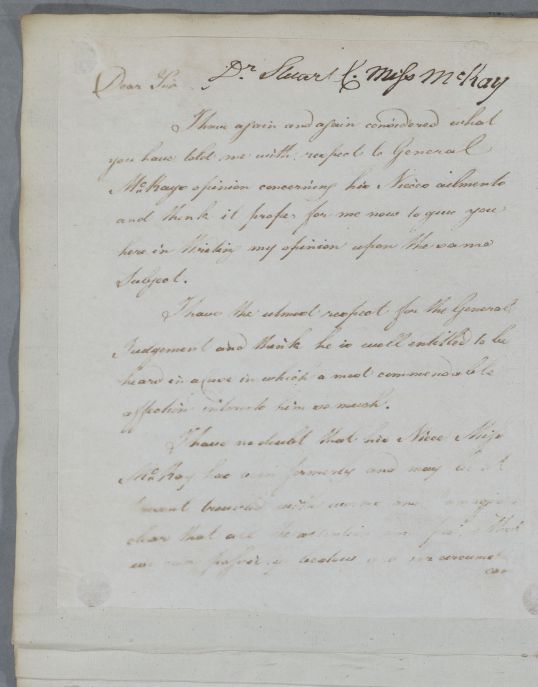 Dr Stuart C. Miss McKay
Dear Sir
I have again and again considered what
you have told me with respect to General
McKays opinion concerning his Nieces ailments
and think it proper for me now to give you
here in Writing my opinion upon the same
Subject.
I have the utmost respect for the Generals
Judgement and think he is well entitled to be
heard in a case in which a most commendable
affection interests him so much.
I have no doubt that his Niece Miss
McKay has formerly and may be at
present troubled with worms and
clear that all the attention
we can possibly bestow
can